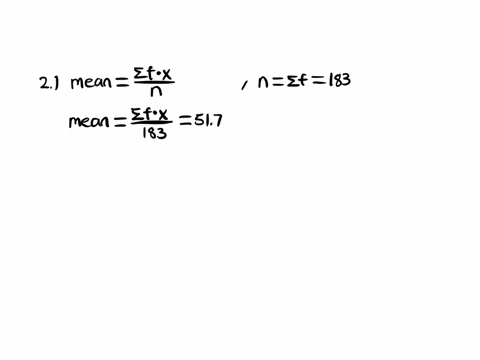 2.) mean = Σf·x / n , n = Σf = 183
mean = Σf·x / 183 = 51.7